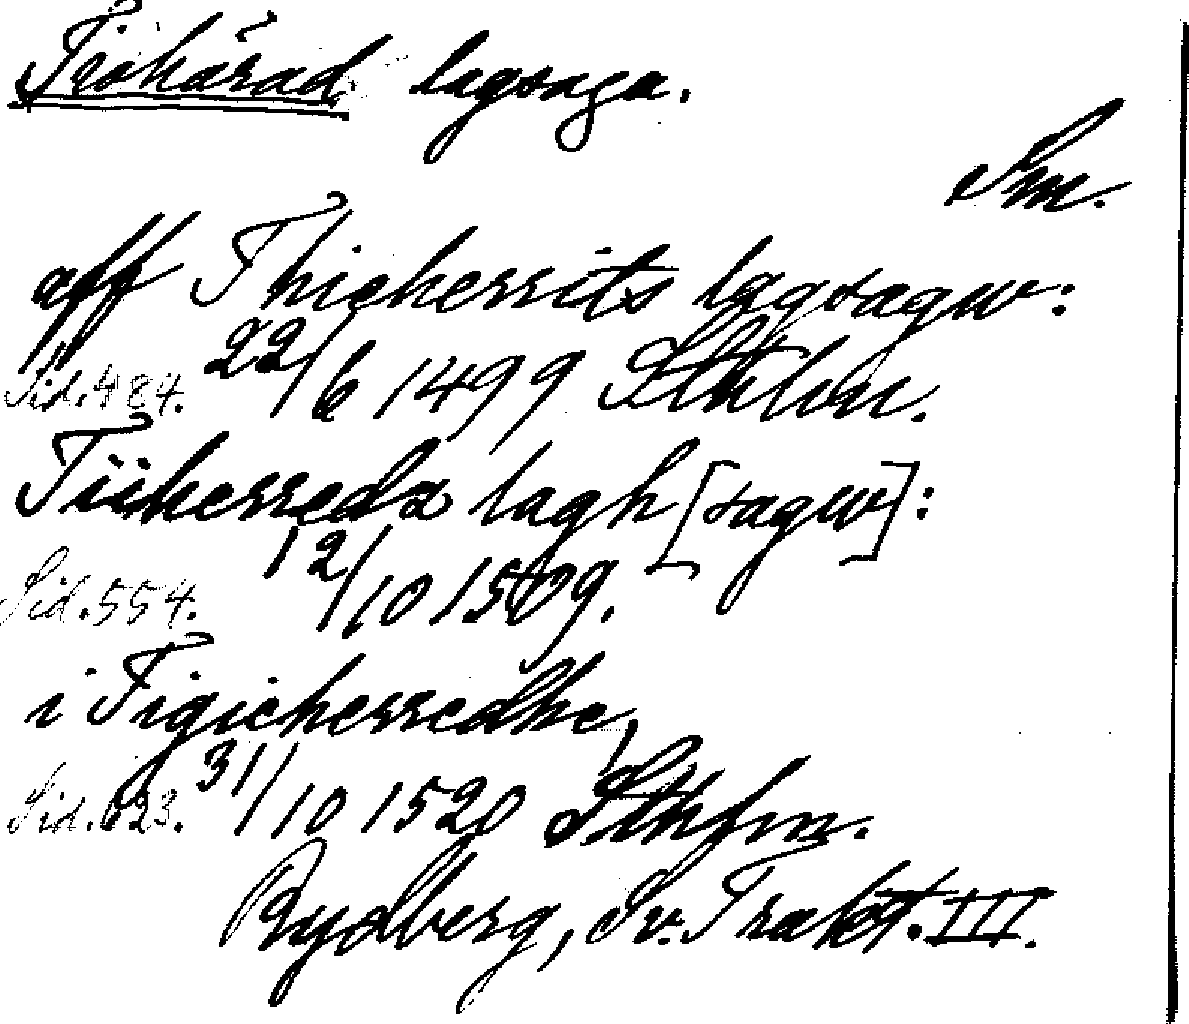 Tiohärad lagsaga.
Sm.
aff Thieherrits lagsagw:
Sid. 484. 22/6 1499 Sthlm.
Tiiherreda lagh [sagw]:
Sid. 554. 12/10 1509.
i Tigieherredhe,
Sid. 623. 31/10 1520 Sthlm.
Rydberg, Sv. Trakt. III.